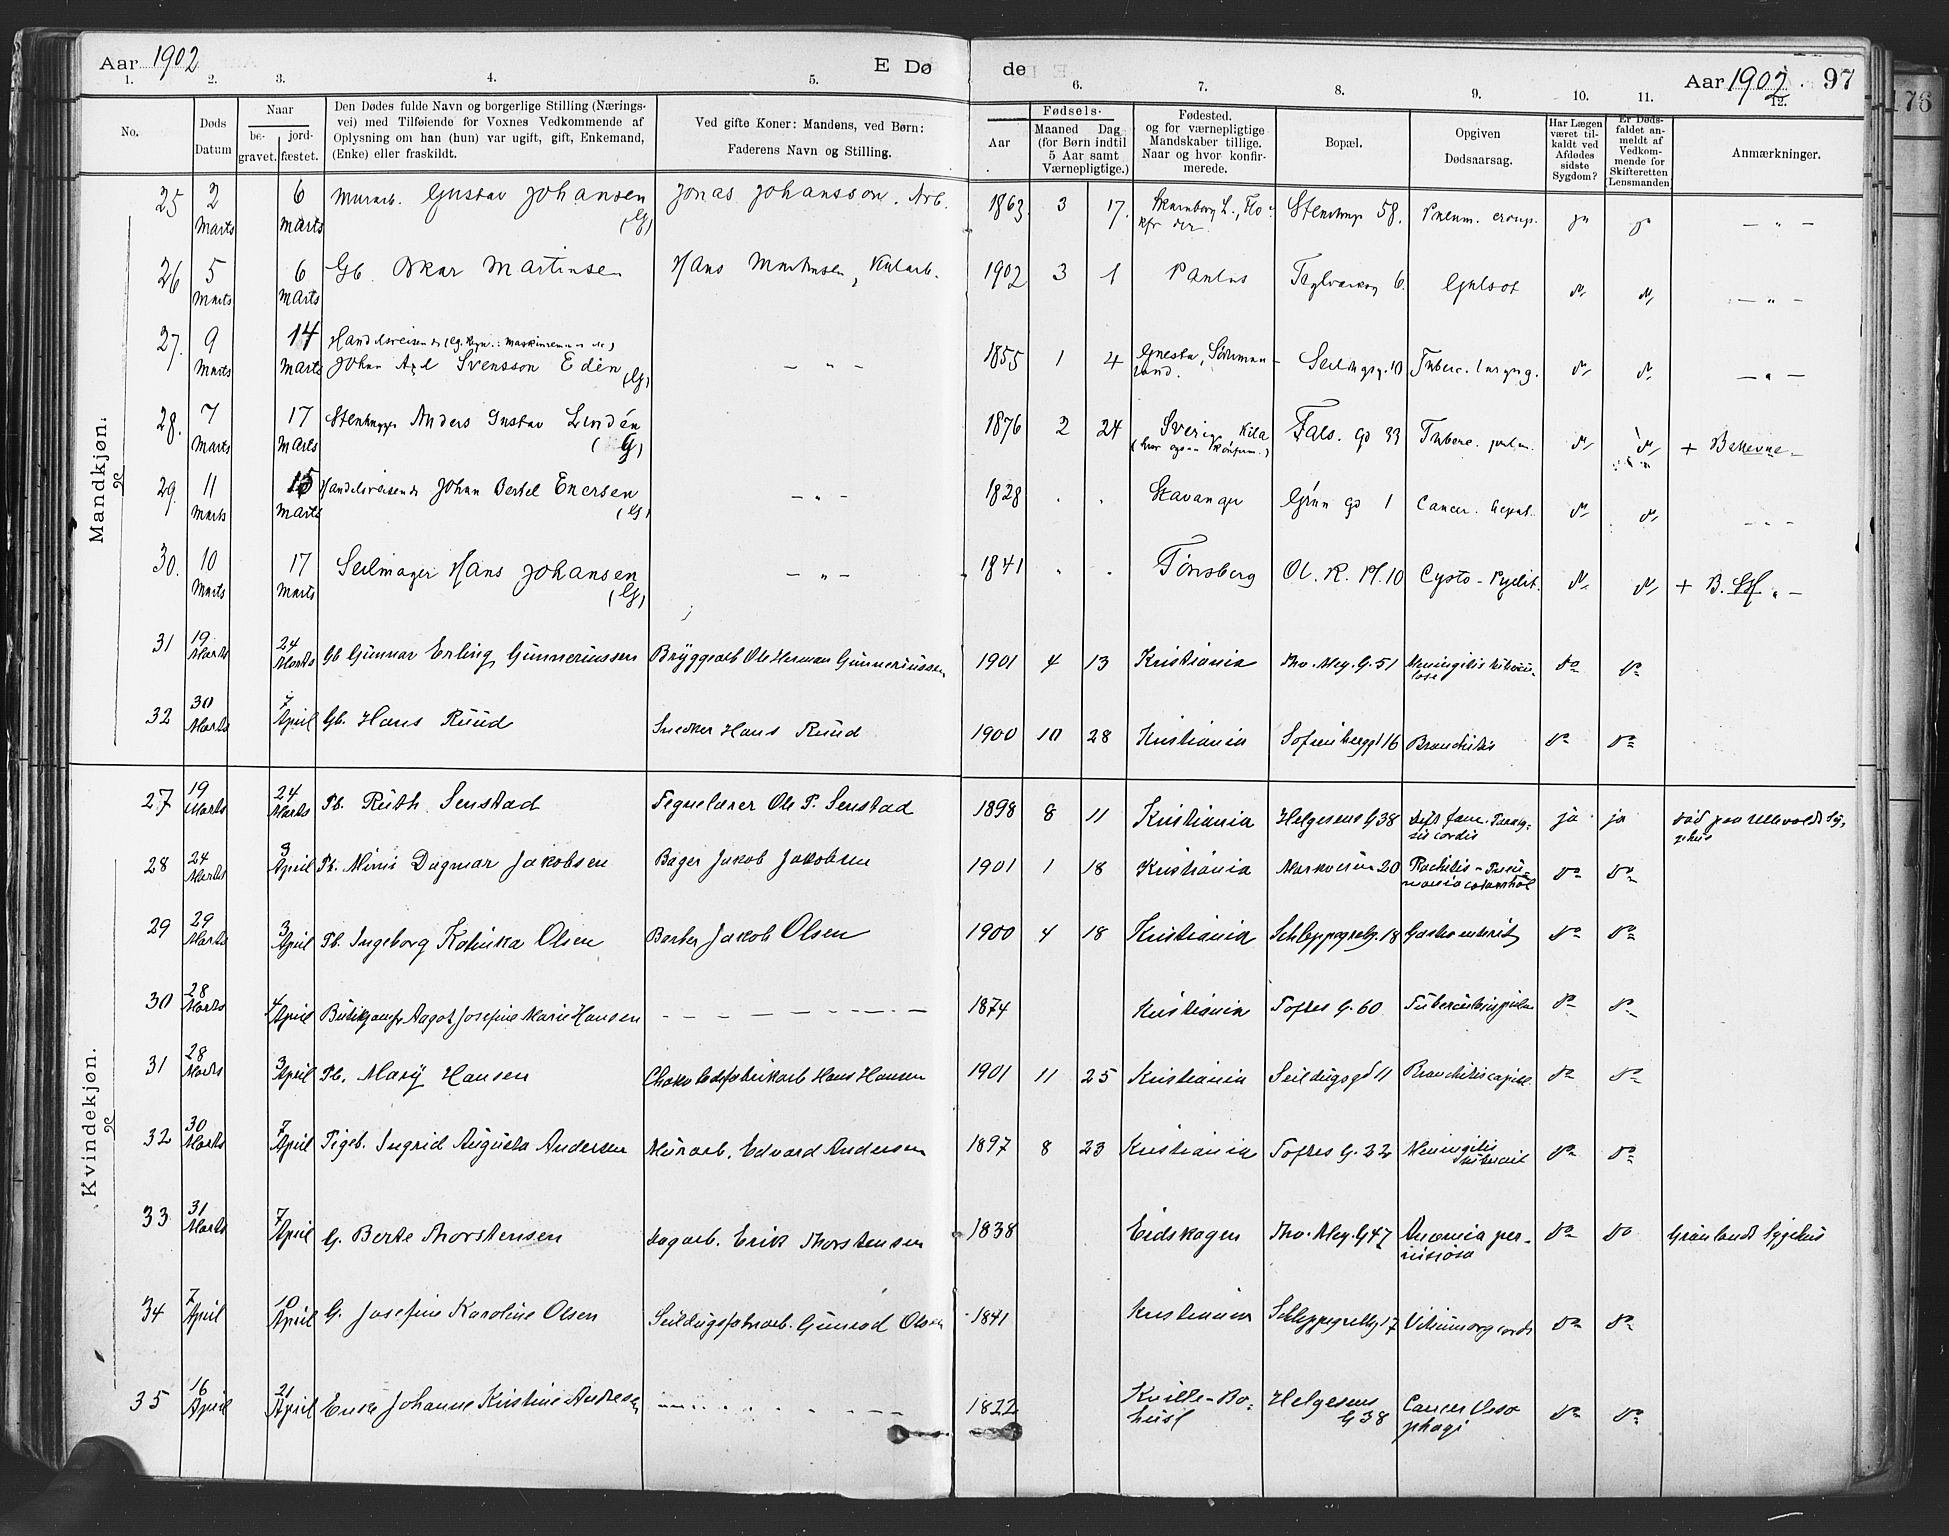 Aar 1902
E Dø
de
Aar 1902. 97
176
1. 2. 3. 4. 5. 6. 7. 8. 9. 10. 11. 12.
No.
Døds Datum
Naar
be-gravet.
jord-fæstet.
Den Dødes fulde Navn og borgerlige Stilling (Nærings-
vei) med Tilføiende for Voxnes Vedkommende af
Oplysning om han (hun) var ugift, gift, Enkemand,
(Enke) eller fraskildt.
Ved gifte Koner: Mandens, ved Børn:
Faderens Navn og Stilling.
Fødsels-
Aar
Maaned Dag
(for Børn indtil
5 Aar samt
Værnepligtige.)
Fødested.
og for værnepligtige
Mandskaber tillige.
Naar og hvor konfir-
merede.
Bopæl.
Opgiven
Dødsaarsag.
Har Lægen
været til-
kaldt ved
Afdødes
sidste
Sygdom?
Er Døds-
faldet an-
meldt af
Vedkom-
mende for
Skifteretten
Lensmanden
Anmærkninger.
Mandkjøn.
25 2 Marts 6 Marts Murarb. Gustav Johansen (G) Jonas Johansson. Arb. 1863 3 17. Stenstrup 58. Pneum. croup. ja ja — " —
26 5 Marts 6 Marts Gb. Oskar Martinsen Hans Martinsen, Kularb. 1902 3 1 Paulus Teglverksg 6. Gulsot do do — " —
27. 9 Marts 14 Marts Handelsreisende
Johan Axel Svensson Edén (G) — " — 1855 1 4 Gnesta, Söderman-
land. Seildugsg. 10 Tuberc. laryng. do do — " —
28. 7 Marts 17 Marts Stenhugger Anders Gustav Lindén (G) 1876 2 24 Sverig, Kila
(hvor ogsaa konfirm.) Fals. gd 33 Tuberc. pulm. do do + Bekevne —
29. 11 Marts 15 Marts Handelsreisende Johan Bertel Enersen (G) — " — 1828 . . Stavanger Grün gd 1 Cancer. hepat. do do — " —
30. 10 Marts 17 Marts Seilmager Hans Johansen (G) — " — 1841 . . Tønsberg Ol. R. Pl. 10 Cysto-Pyelit. do do + B.
31 19 Marts 24 Marts Gb Gunnar Erling Gunneriussen Bryggearb Ole Herman Gunneriussen 1901 4 13 Kristiania Tho. Mey. G. 51 Meningitis tubercu-
lose do do
32 30 Marts 7 April Gb. Hans Ruud Snedker Hans Ruud 1900 10 28 Kristiania Sofienberggd 16 Bronchitis do do
Kvindekjøn.
27 19 Marts 24 Marts Pb. Ruth Senstad Tegnelærer Ole P. Senstad 1898 8 11 Kristiania Helgesens G 38 Dift. fauc. Paraly-
sis cordis ja ja Død paa Ullevold Sy-
gehus
28 24 Marts 3 April Pb. Mimi Dagmar Jakobsen Bager Jakob Jakobsen 1901 1 18 Kristiania Markveien 20 Rachitis - Pneu-
monia catarrhal do do
29 29 Marts 3 April Pb. Ingeborg Katinka Olsen Barber Jakob Olsen 1900 4 18 Kristiania Schleppegrelg. 18 Gastroenterit do do
30 28 Marts 4 April Butikjomfr Aagot Josefine Marie Hansen — — — 1874 Kristiania Toftes G. 60 Tuberculosis pulm do do
31 28 Marts 3 April Pb. Mary Hansen Chokoladefabrikarb Hans Hansen 1901 11 25 Kristiania Seildugsgd 11 Bronchitis capill. do do
32 30 Marts 7 April Pigeb. Ingrid Augusta Andersen Murarb. Edvard Andersen 1897 8 23 Kristiania Toftes G. 32 Meningitis
tubercul do do
33 31 Marts 7 April G. Berte Thorstensen Dagarb. Erik Thorstensen 1838 Eidskogen Tho. Mey. G 47 Anæmia per-
nisiøsa do do Grønlands Sygehus
34 7 April 10 April G. Josefine Karoline Olsen Seildugsfabrarb. Gunerod Olsen 1841 Kristiania Schleppegrellg 17 Vitium org cordis do do
35 16 April 21 April Enke Johanne Kristine Andresen — — — 1822 Kville-Bo-
husl Helgesens
G 38 Cancer Oeso
phagi do do